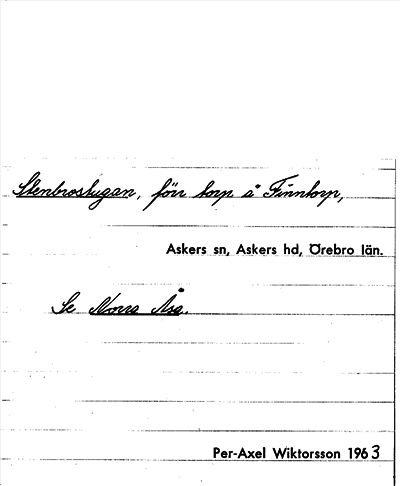 Stenbrostugan, förr torp å Finntorp,
Askers sn, Askers hd, Örebro län.
Se Norra Åsa.
Per-Axel Wiktorsson 1963